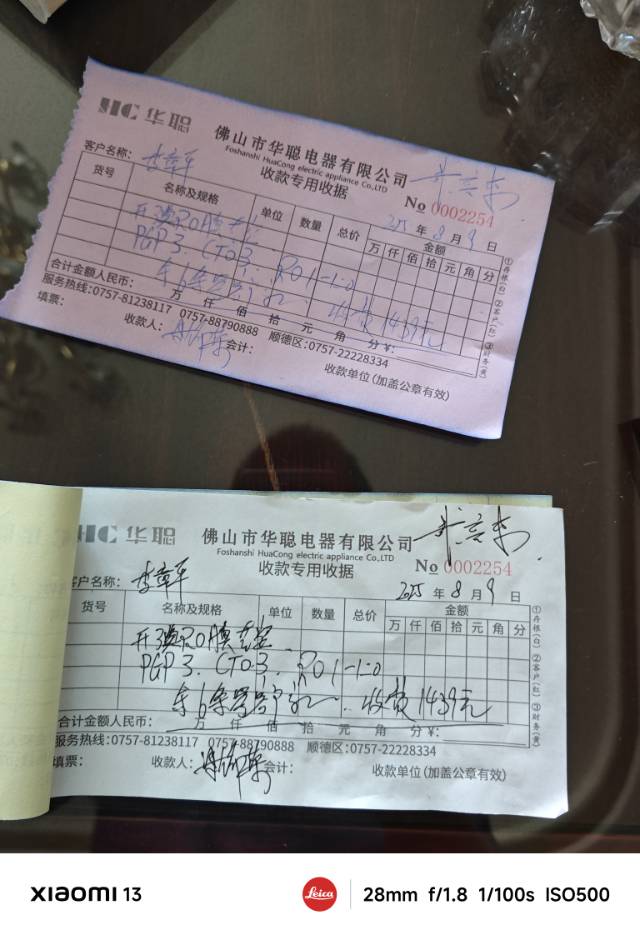 HC 华聪
佛山市华聪电器有限公司
Foshanshi HuaCong electric appliance Co.,LTD
收款专用收据
No 0002254
客户名称：李章平
2025 年 8 月 9 日
货号 名称及规格 单位 数量 总价 金额
万 仟 佰 拾 元 角 分
PGP3. CTO3. RO1-1:0
收费1439元
合计金额人民币： 万 仟 佰 拾 元 角 分 ¥:
服务热线:0757-81238117 0757-88790888 顺德区:0757-22228334
填票： 收款人： 会计： 收款单位(加盖公章有效)
①存根(白) ②客户(红) ③财务(黄)
HC 华聪
佛山市华聪电器有限公司
Foshanshi HuaCong electric appliance Co.,LTD
收款专用收据
No 0002254
客户名称：李章平
2025 年 8 月 9 日
货号 名称及规格 单位 数量 总价 金额
万 仟 佰 拾 元 角 分
PGP3. CTO3. RO1-1:0
收费1439元
合计金额人民币： 万 仟 佰 拾 元 角 分 ¥:
服务热线:0757-81238117 0757-88790888 顺德区:0757-22228334
填票： 收款人： 会计： 收款单位(加盖公章有效)
①存根(白) ②客户(红) ③财务(黄)
XIAOMI 13
Leica
28mm f/1.8 1/100s ISO500